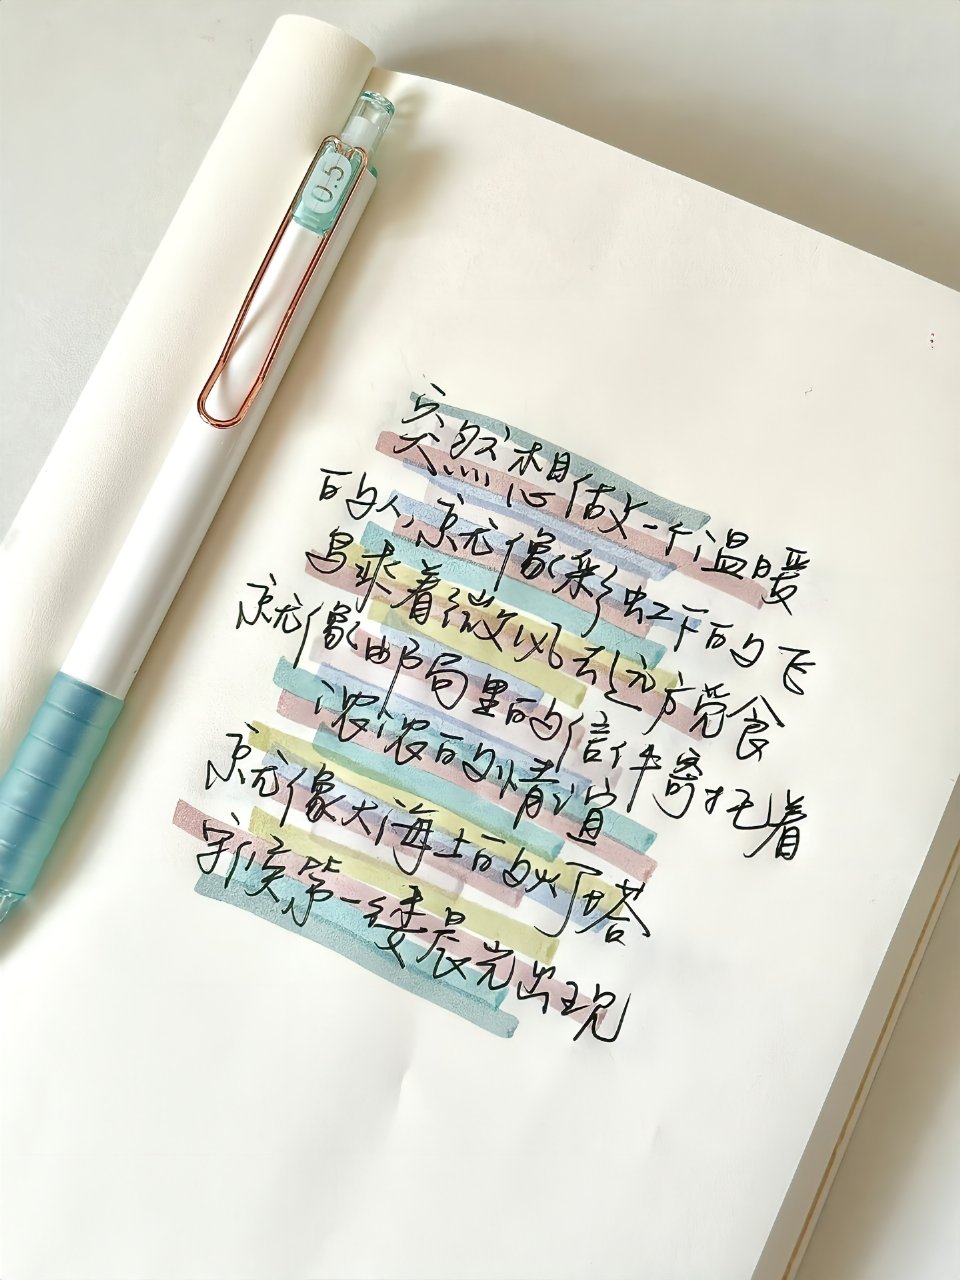 0.5
突然想做一个温暖
的人,就像彩虹下的飞
鸟求着微风去远方觅食
就像邮局里的信件寄托着
浓浓的情谊
就像大海上的灯塔
守候第一缕晨光出现